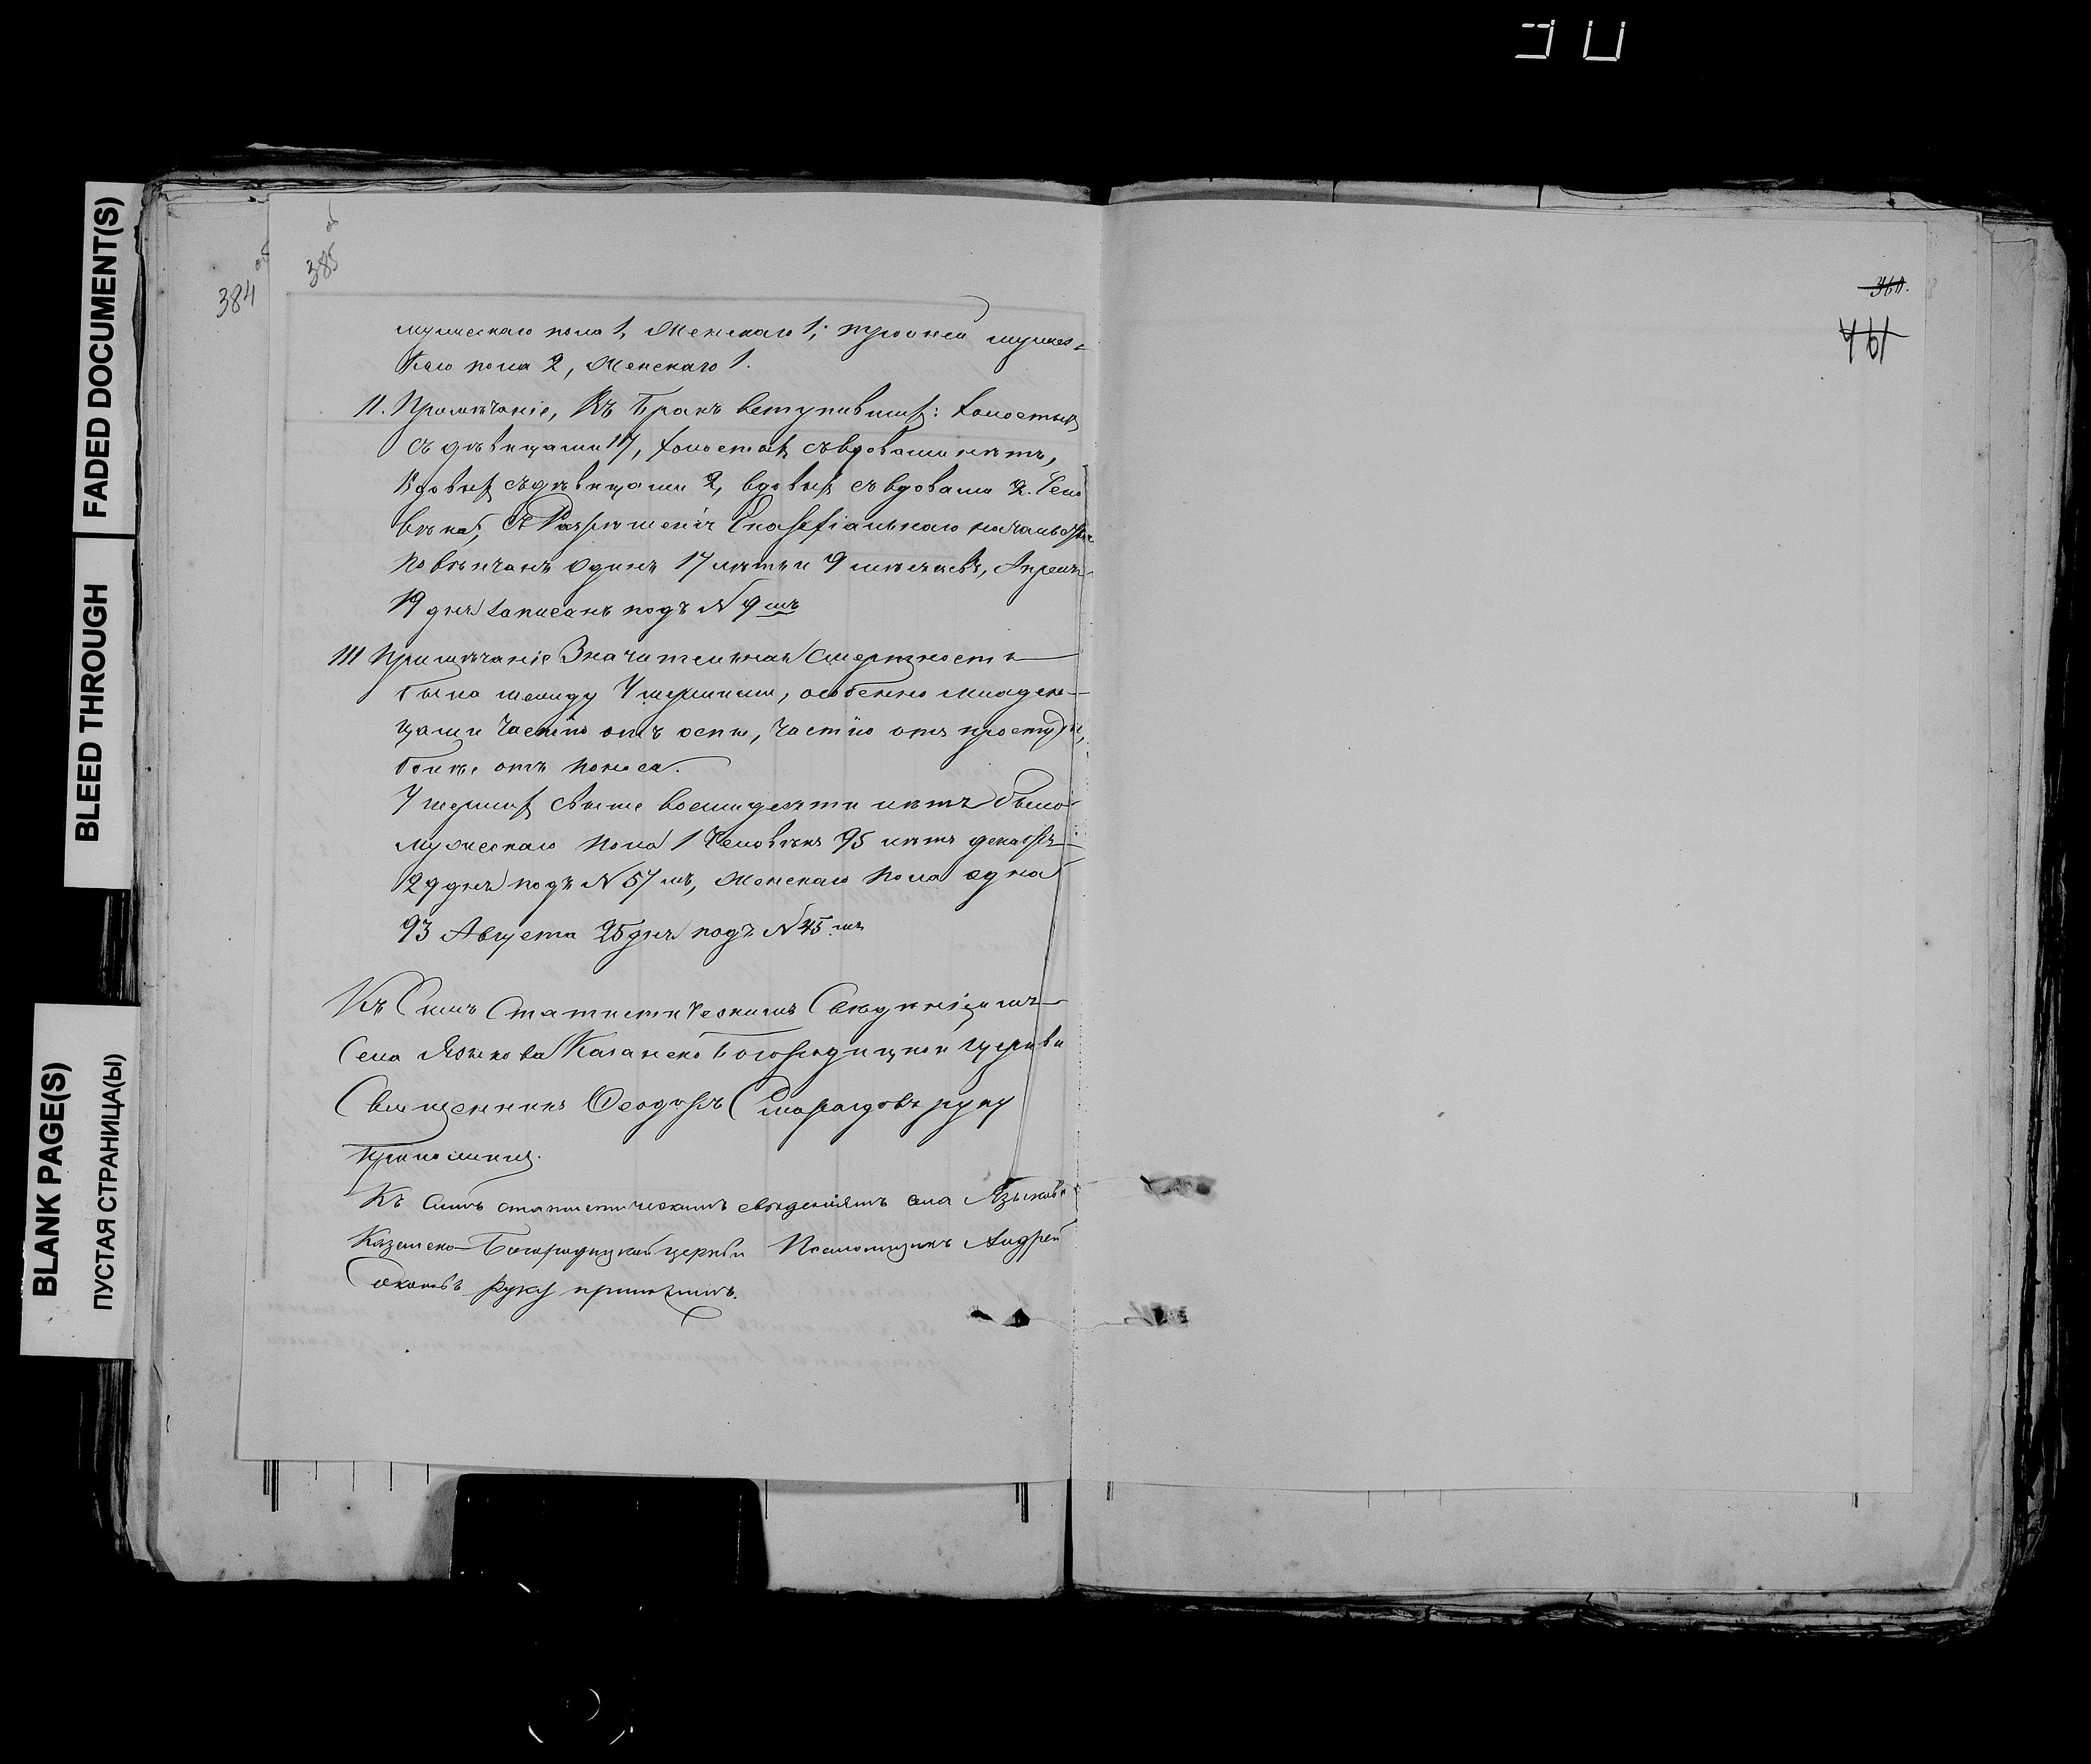 FADED DOCUMENT(S)
BLEED THROUGH
BLANK PAGE(S)
ПУСТАЯ СТРАНИЦА(Ы)
384 об
385 об
мужескаго пола 1, Женскаго 1; тройней мужес-
каго пола 2, Женскаго 1.
II. Примѣчаніе, Въ Бракъ вступившихъ: холостыхъ
съ дѣвицами 17, холостыхъ съ вдовами нѣтъ,
Вдовыхъ съ дѣвицами 2, вдовыхъ съ вдовами 2. Чело
вѣка, Съ Разрѣшенія Епархіальнаго начальства
повѣнчанъ одинъ 17 лѣтъ и 9 мѣсяцевъ, Апреля
19 дня записанъ подъ N 9 мъ
III Примѣчаніе Значительная Смертность
была между Умершими, особенно младен-
цами Частію отъ оспы, Частію отъ простуды,
болѣе отъ поноса.
Умершихъ свыше восмидесяти лѣтъ было
Мужескаго пола 1 Человѣкъ 95 лѣтъ декабря
29 дня подъ N 57 мъ, Женскаго пола одна
93 Августа 25 дня подъ N 45 мъ
Къ Симъ Статистическимъ Свѣдѣніямъ
Села Языкова Казанско Богородицкой Церкви
Священникъ Ѳеодоръ Смарагдовъ руку
приложилъ.
Къ симъ статистическимъ свѣденіямъ села Языкова
Казанско-Богородицкой церкви Псаломщикъ Андрей
руку приложилъ.
360.
461